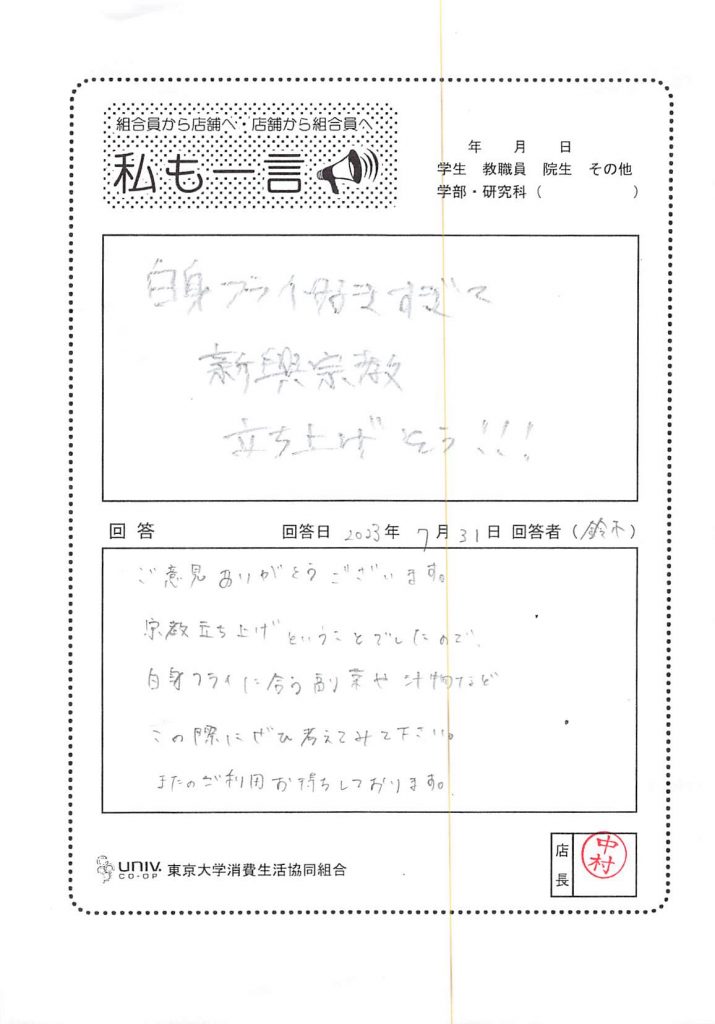 組合員から店舗へ・店舗から組合員へ
私も一言
年 月 日
学生 教職員 院生 その他
学部・研究科（ ）
白身フライ好きすぎて
新興宗教
立ち上げそう!!!
回答 回答日 2023年 7月31日 回答者（鈴木）
ご意見ありがとうございます。
宗教立ち上げということでしたので、
白身フライに合う副菜や汁物など
この際にぜひ考えてみて下さい。
またのご利用お待ちしております。
UNIV. CO-OP 東京大学消費生活協同組合
店長 中村